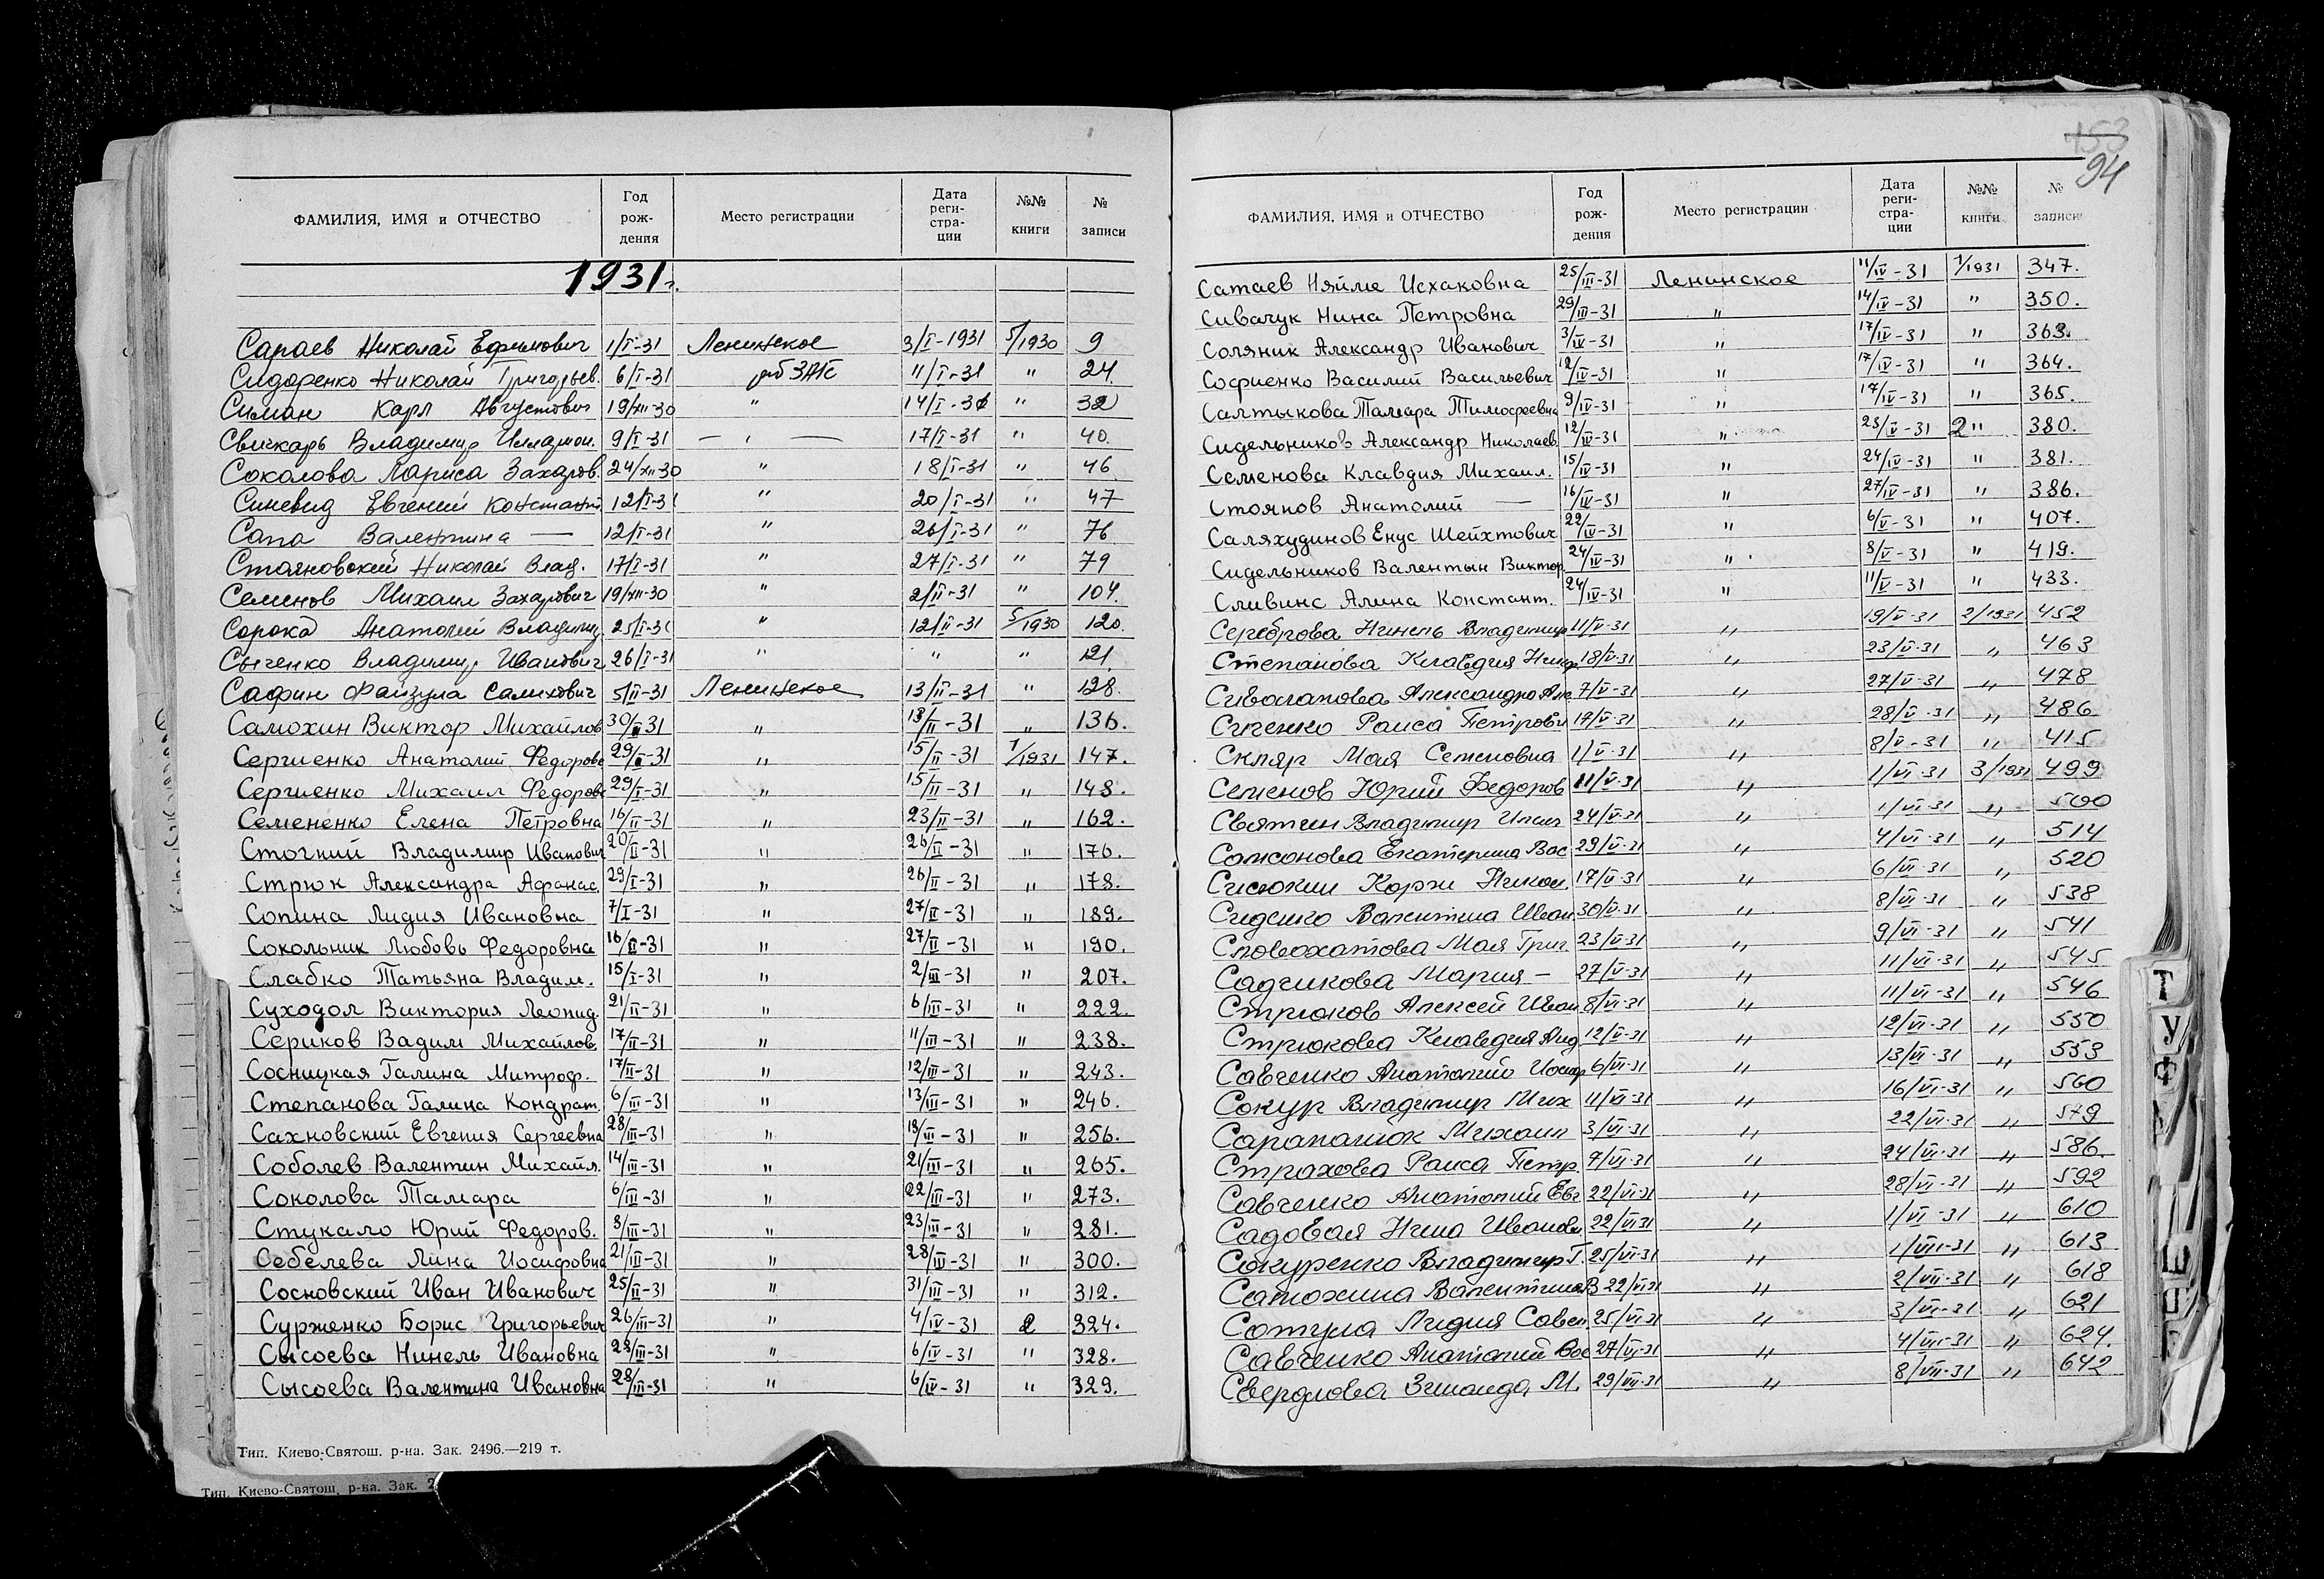 ФАМИЛИЯ, ИМЯ и ОТЧЕСТВО Год рож-дения Место регистрации Дата реги-стра-ции №№ книги № записи
1931 г.
Сараев Николай Ефимович 1/I-31 Ленинское 3/I-1931 5/1930 9
Сидоренко Николай Григорьев. 6/I-31 рб ЗАГС 11/I-31 " 24
Симан Карл Августович 19/XII-30 " 14/I-31 " 32
Свичкарь Владимир Илларион. 9/I-31 — " — 17/I-31 " 40.
Соколова Лариса Захаров. 24/XII-30 " 18/I-31 " 46
Синевид Евгений Констант. 12/I-31 " 20/I-31 " 47
Сапа Валентина — 12/I-31 " 26/I-31 " 76
Стояновский Николай Влад. 17/I-31 " 27/I-31 " 79
Семенов Михаил Захарович 19/XII-30 " 2/II-31 " 104.
Сорока Анатолий Владимир. 25/I-31 " 12/II-31 5/1930 120.
Сыченко Владимир Иванович 26/I-31 " " " 121
Сафин Файзула Салихович 5/II-31 Ленинское 13/II-31 " 128.
Самохин Виктор Михайлов 30/I-31 " 13/II-31 " 136.
Сергиенко Анатолий Федорове 29/I-31 " 15/II-31 1/1931 147.
Сергиенко Михаил Федорове 29/I-31 " 15/II-31 " 148.
Семененко Елена Петровна 16/II-31 " 23/II-31 " 162.
Стогний Владимир Иванович 20/II-31 " 26/II-31 " 176.
Стрюк Александра Афанас. 29/I-31 " 26/II-31 " 178.
Сопина Лидия Ивановна 7/I-31 " 27/II-31 " 189.
Сокольник Любовь Федоровна 16/II-31 " 27/II-31 " 190.
Слабко Татьяна Владим. 15/I-31 " 2/III-31 " 207.
Суходол Виктория Леонид. 21/II-31 " 6/III-31 " 222.
Сериков Вадим Михайлов. 17/II-31 " 11/III-31 " 238.
Сосницкая Галина Митроф. 17/II-31 " 12/III-31 " 243.
Степанова Галина Кондрат. 6/III-31 " 13/III-31 " 246.
Сахновский Евгения Сергеевна 28/III-31 " 19/III-31 " 256.
Соболев Валентин Михайл. 14/III-31 " 21/III-31 " 265.
Соколова Тамара 6/III-31 " 22/III-31 " 273.
Стукало Юрий Федоров. 8/III-31 " 23/III-31 " 281.
Себелева Лина Иосифовна 21/III-31 " 28/III-31 " 300.
Сосновский Иван Иванович 25/II-31 " 31/III-31 " 312.
Сурженко Борис Григорьевич 26/III-31 " 4/IV-31 2 324.
Сысоева Нинель Ивановна 28/III-31 " 6/IV-31 " 328.
Сысоева Валентина Ивановна 28/III-31 " 6/IV-31 " 329.
Тип. Киево-Святош. р-на. Зак. 2496.—219 т.
Тип. Киево-Святош. р-на. Зак. 2
153
94
ФАМИЛИЯ, ИМЯ и ОТЧЕСТВО Год рож-дения Место регистрации Дата реги-стра-ции №№ книги № записи
Сатаев Няйме Исхаковна 25/III-31 Ленинское 11/IV-31 1/1931 347.
Сивачук Нина Петровна 29/III-31 " 14/IV-31 " 350.
Соляник Александр Иванович 3/IV-31 " 17/IV-31 " 363.
Софиенко Василий Васильевич 12/IV-31 " 17/IV-31 " 364.
Салтыкова Тамара Тимофеевна 9/IV-31 " 17/IV-31 " 365.
Сидельников Александр Николаев. 12/IV-31 " 23/IV-31 2 " 380.
Семенова Клавдия Михаил. 15/IV-31 " 24/IV-31 " 381.
Стоянов Анатолий — 16/IV-31 " 27/IV-31 " 386.
Саляхудинов Енус Шейхтович 22/IV-31 " 6/V-31 " 407.
Сидельников Валентын Виктор. 24/IV-31 " 8/V-31 " 419.
Сливинс Алина Констант. 24/IV-31 " 11/V-31 " 433.
Сереброва Нинель Владимир 11/V-31 " 19/V-31 2/1931 452
Степанова Клавдия 18/V-31 " 23/V-31 " 463
Сиволапова Александра Але 7/V-31 " 27/V-31 " 478
Раиса Петровн 19/V-31 " 28/V-31 " 486
Скляр Мая Семеновна 1/V-31 " 8/V-31 " 415
Семенов Юрий Федоров 11/V-31 " 1/VI-31 3/1931 499
Святин Владимир 24/V-31 " 1/VI-31 " 500
Самсонова Екатерина Вас 29/V-31 " 4/VI-31 " 514
Никол. 17/V-31 " 6/VI-31 " 520
Сиденко Валентина Иван 30/V-31 " 8/VI-31 " 538
Словохатова Мая Григ. 23/V-31 " 9/VI-31 " 541
Садчикова Мария — 27/V-31 " 11/VI-31 " 545
Стрюков Алексей Иван 8/VI-31 " 11/VI-31 " 546
Стрюкова Клавдия Анд 12/V-31 " 12/VI-31 " 550
Савченко Анатолий Иосиф 6/VI-31 " 13/VI-31 " 553
Сокур Владимир Мих 11/VI-31 " 16/VI-31 " 560
Сарапанюк Михаил 3/VI-31 " 22/VI-31 " 579
Страхова Раиса Петр. 7/VI-31 " 24/VI-31 " 586.
Савченко Анатолий Евг 22/VI-31 " 28/VI-31 " 592
Садовая Нина Ивановн 22/VI-31 " 1/VI-31 " 610
Сокуренко Владимир Г. 25/VI-31 " 1/VII-31 " 613
Самохина Валентина В 22/VI-31 " 2/VII-31 " 618
Сотула Лидия Савел. 25/VI-31 " 3/VII-31 " 621
Савченко Анатолий Вас 27/VI-31 " 4/VII-31 " 624.
Свердлова Зинаида М. 29/VII-31 " 8/VII-31 " 642
Т
У
Ф